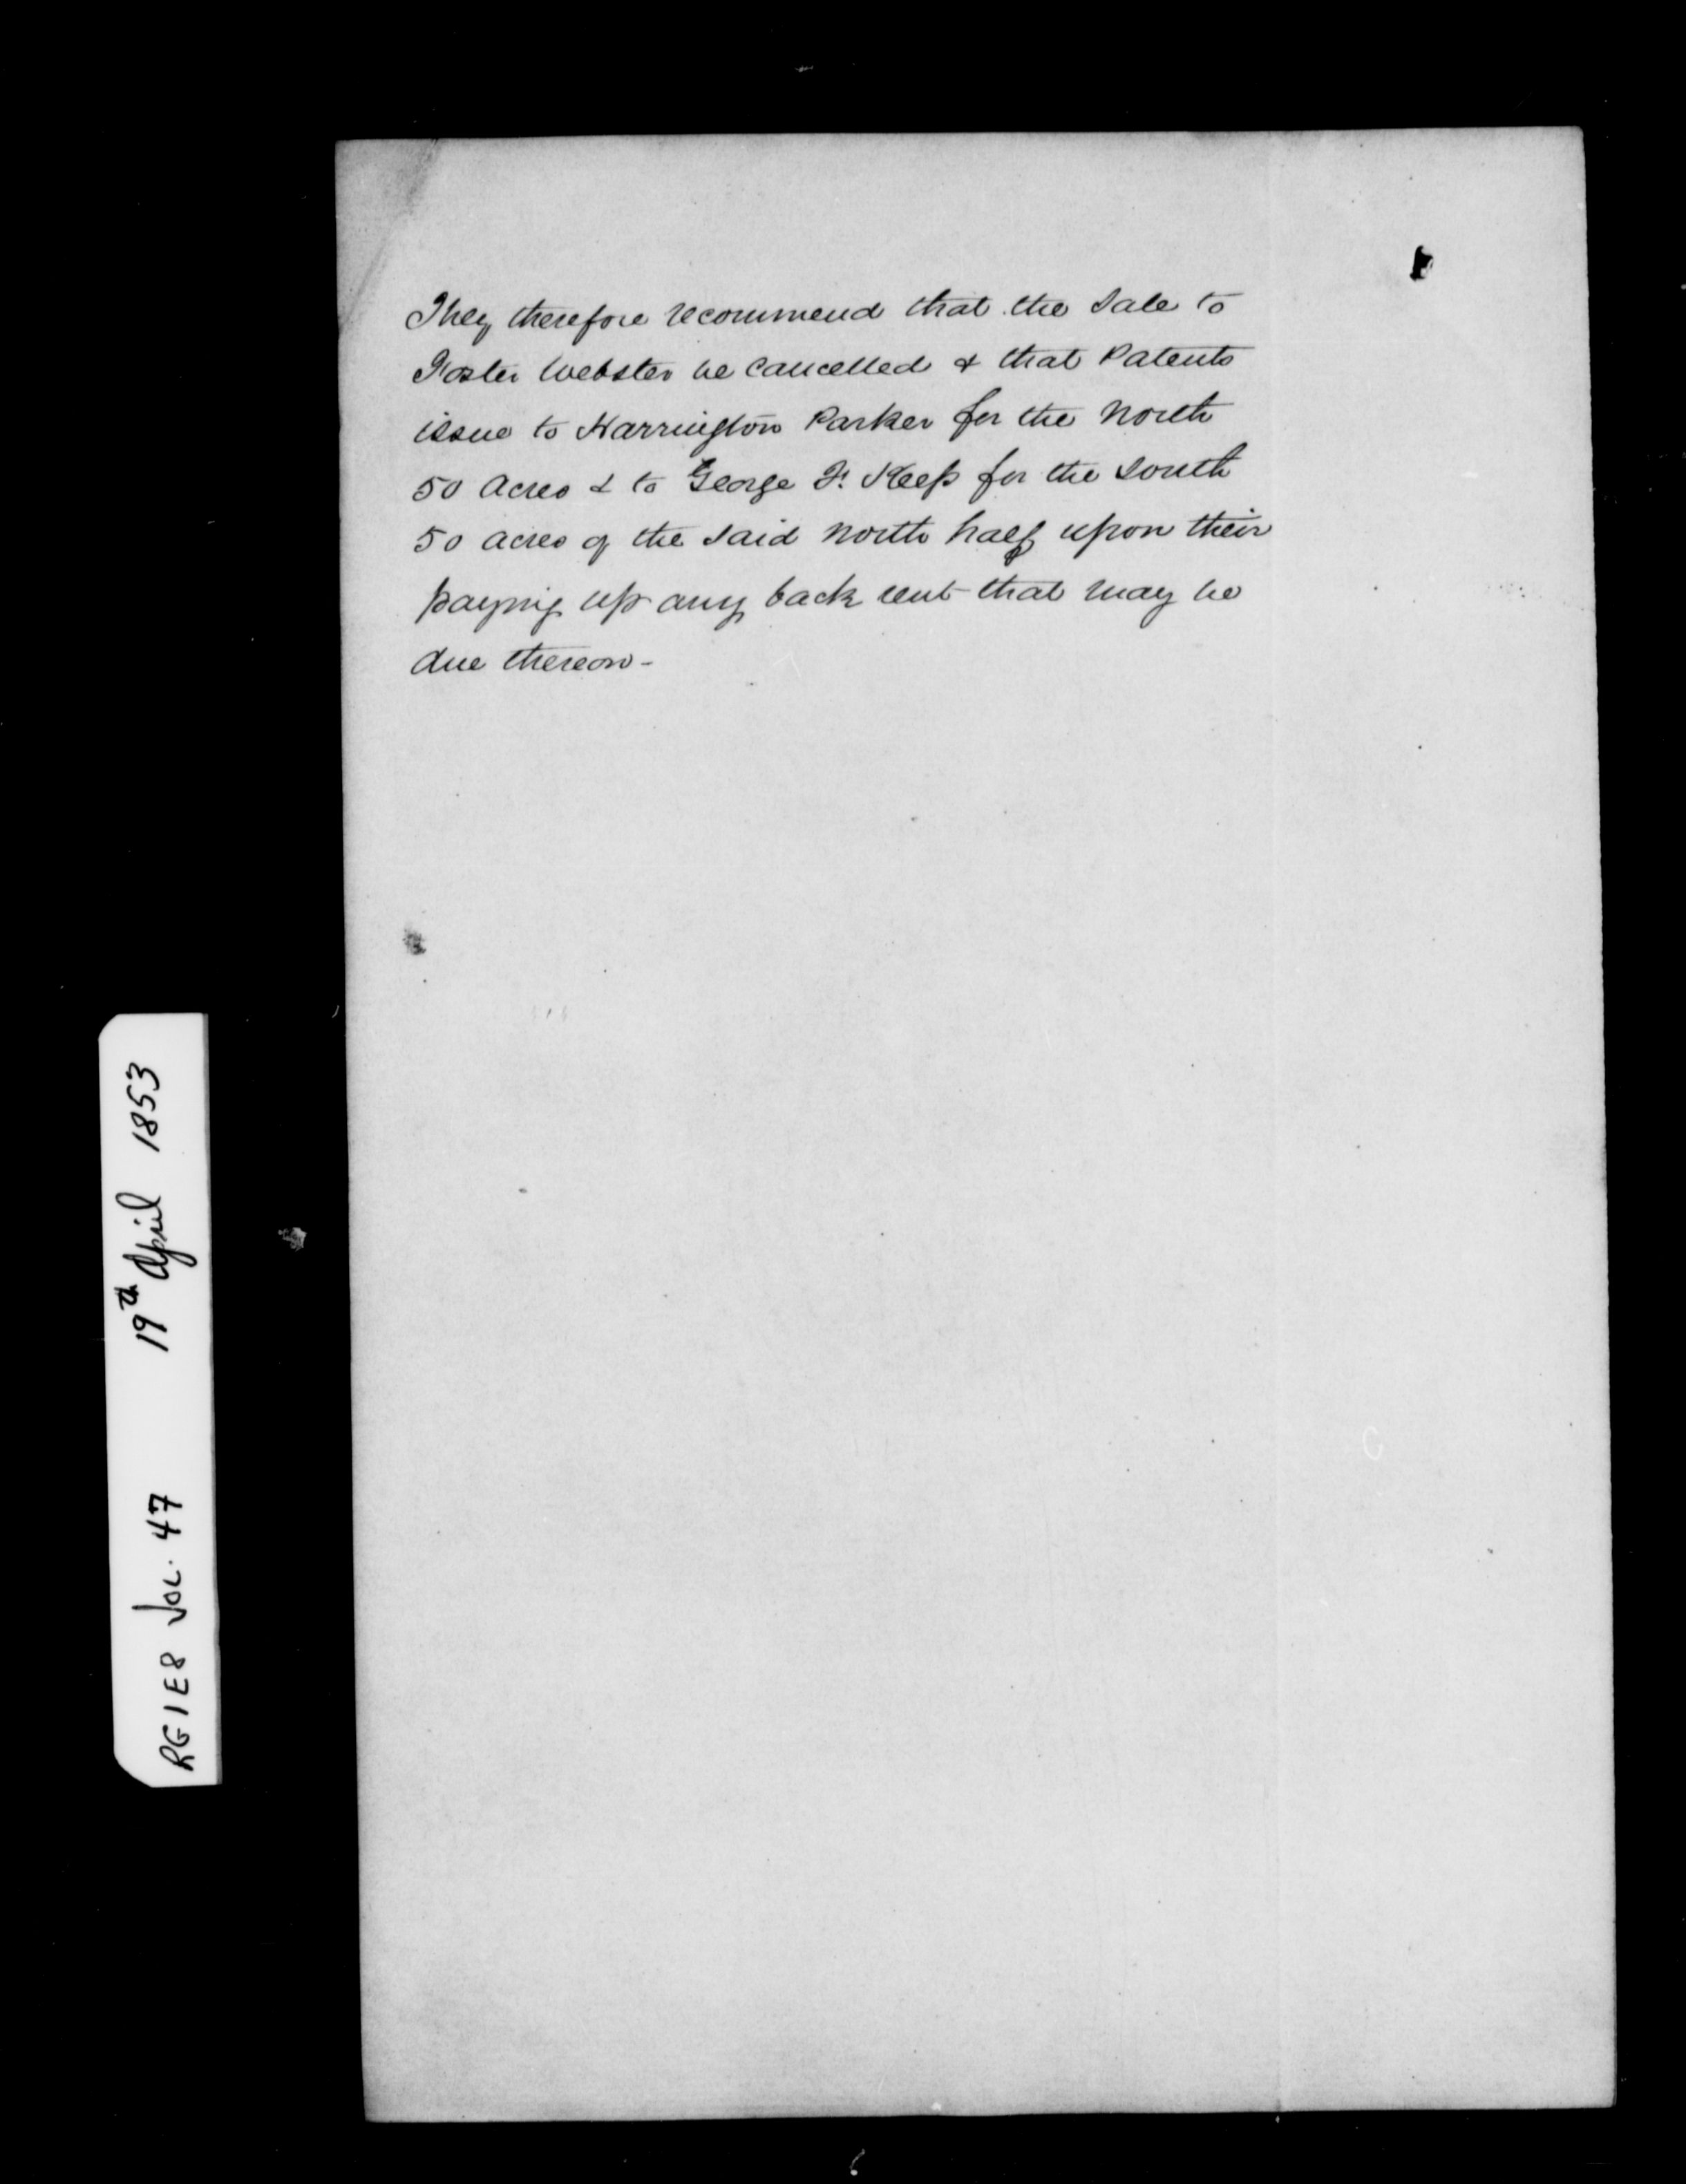 They therefore recommend that the Sale to
Foster Webster be cancelled & that Patents
issue to Harrington Parker for the North
50 Acres & to George F. for the South
50 acres of the said North half upon their
paying up any back rent that may be
due thereon -
RG1E8 VOL. 47 19th April 1853